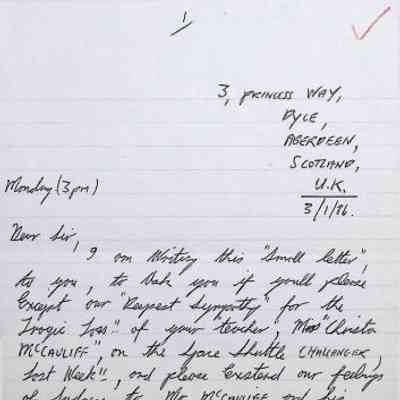 1
3, PRINCESS WAY,
DYCE,
ABERDEEN,
SCOTLAND,
U.K.
3/1/86.
Monday (3pm)
Dear Sir,
I am Writing this "Small letter",
to you, to Ask you if youll please
Except our "Deepest Sympathy" for the
Tragic Loss". of your teacher, "Christa
McCAULIFF", on the Space Shuttle CHALLANGER,
Last Week", and please Exstend our feelings
of Sadness to Mr McCAULIFF and his